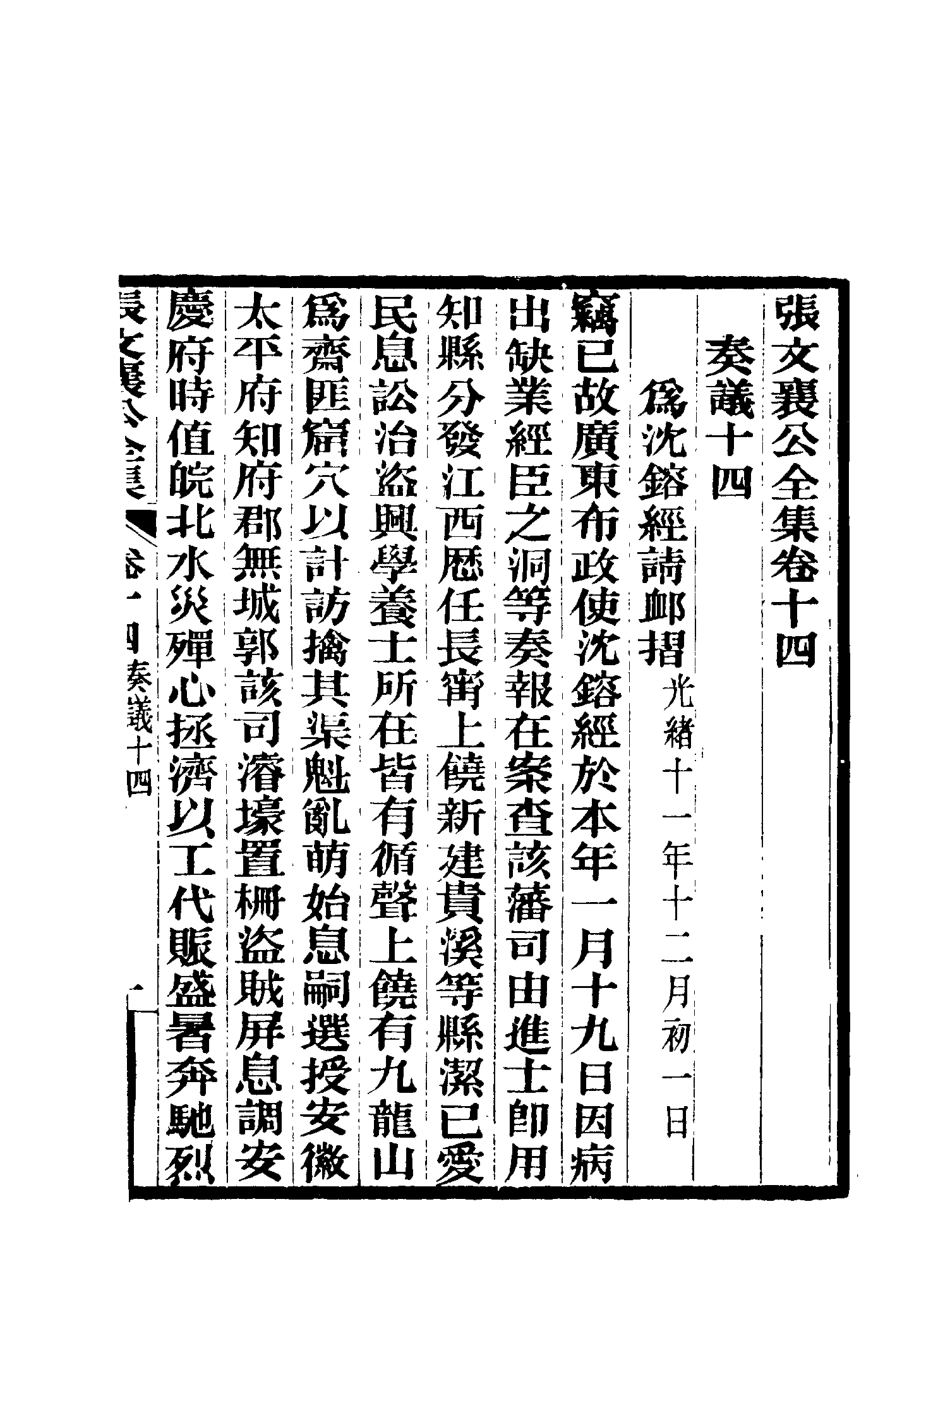 張文襄公全集卷十四
奏議十四
爲沈鎔經請䘏摺光緒十一年十二月初一日
竊已故廣東布政使沈鎔經於本年一月十九日因病
出缺業經臣之洞等奏報在案查該藩司由進士卽用
知縣分發江西歷任長甯上饒新建貴溪等縣潔已愛
民息訟治盜興學養士所在皆有循聲上饒有九龍山
爲齋匪窟穴以計訪擒其渠魁亂萌始息嗣選授安徽
太平府知府郡無城郭該司濬壕置柵盜賊屏息調安
慶府時值皖北水災殫心拯濟以工代賑盛暑奔馳烈
張文襄公全集 卷十四奏議十四 一